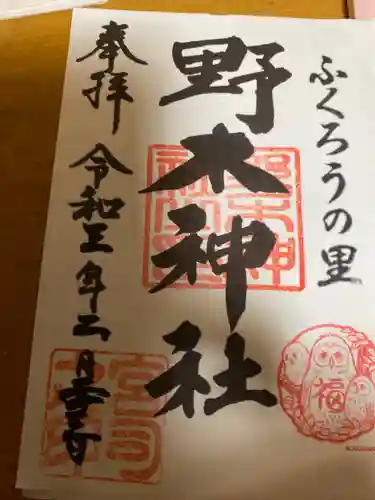 ふくろうの里
野木神社
奉拝
令和三年二月
福
宮司